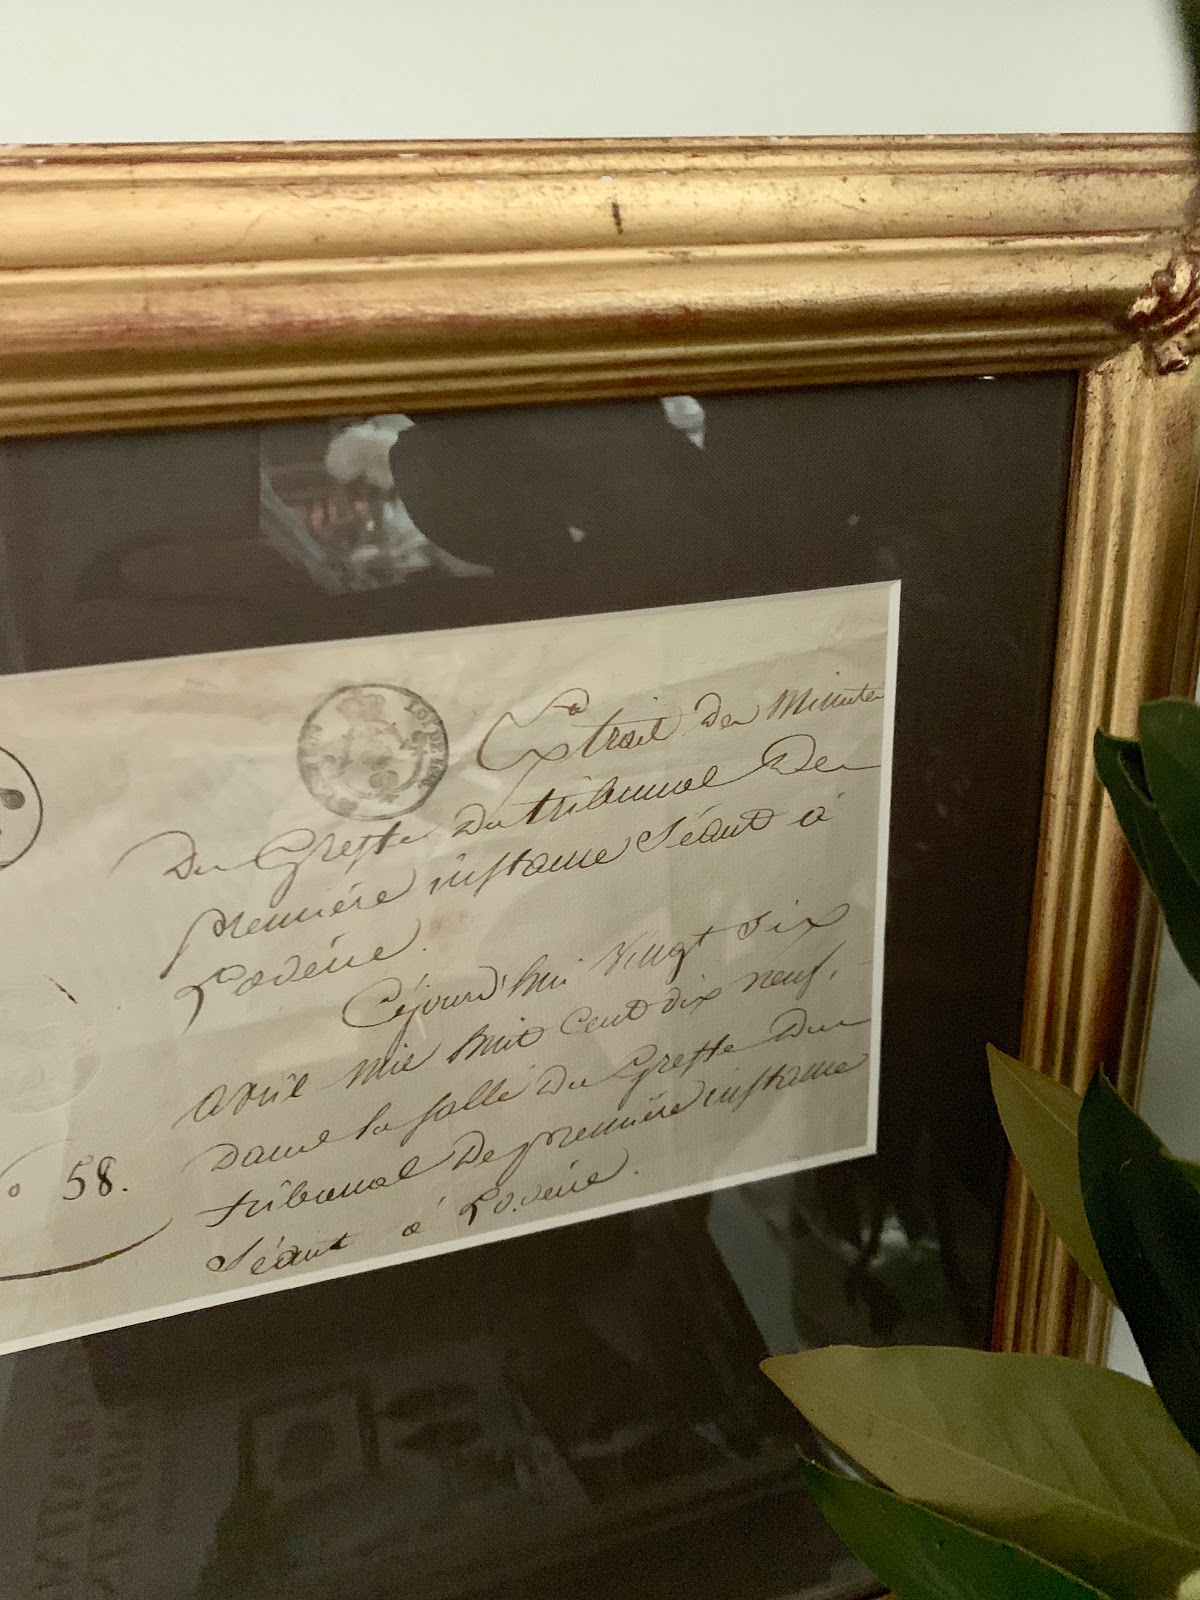 Extrait Des Minutes
Du Greffe Du tribunal De
première instance Séant à
Lodève.
Cejourd'hui Vingt Six
avril mil huit Cent dix neuf,
Dans la Salle Du Greffe Du
tribunal De première instance
Séant à Lodève.
58.